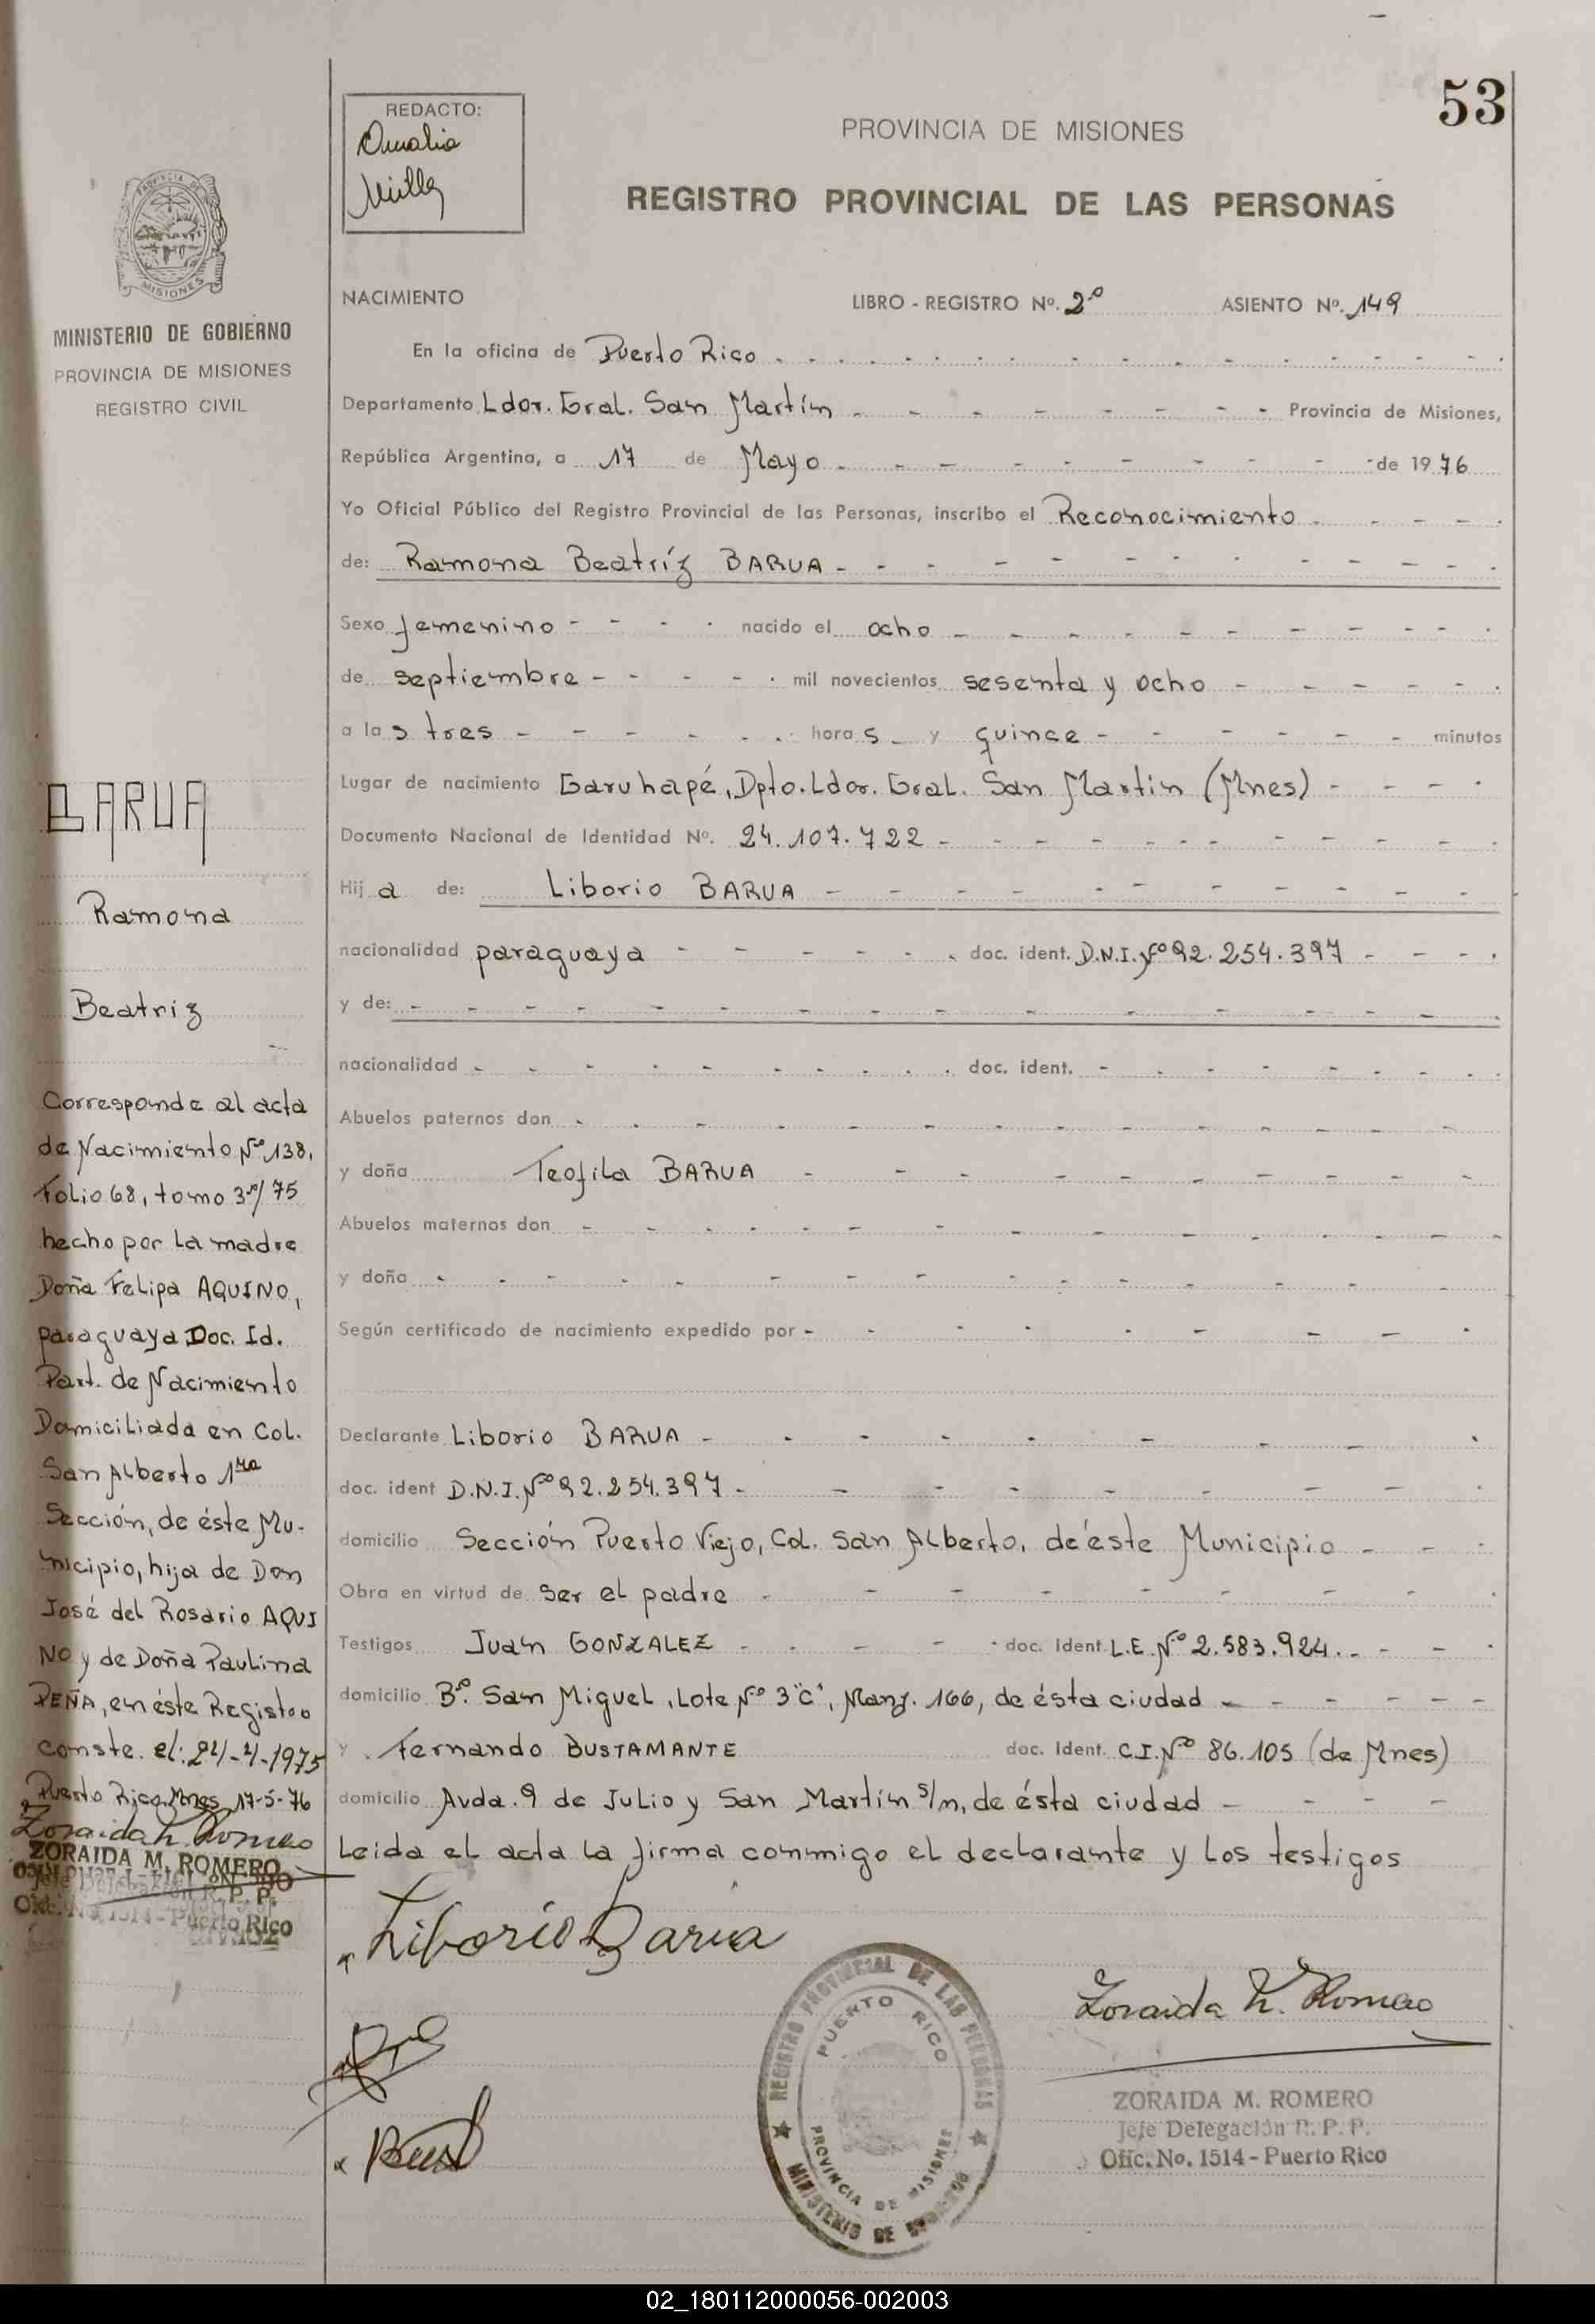 53
REDACTO:
PROVINCIA DE MISIONES
REGISTRO PROVINCIAL DE LAS PERSONAS
PROVINCIA DE
MISIONES
MINISTERIO DE GOBIERNO
PROVINCIA DE MISIONES
REGISTRO CIVIL
NACIMIENTO LIBRO - REGISTRO Nº. 2º ASIENTO Nº. 149
En la oficina de Puerto Rico
Departamento Ldor. Gral. San Martín Provincia de Misiones,
República Argentina, a 17 de Mayo de 1976
Yo Oficial Público del Registro Provincial de las Personas, inscribo el Reconocimiento
de: Ramona Beatríz BARUA
Sexo femenino nacido el ocho
de septiembre mil novecientos sesenta y ocho
a las tres horas y quince minutos
Lugar de nacimiento Garuhapé, Dpto. Ldor. Gral. San Martín (Mnes)
Documento Nacional de Identidad Nº. 24.107.722
Hija de: Liborio BARUA
nacionalidad paraguaya doc. ident. D.N.I. Nº 92.254.397
y de:
nacionalidad doc. ident.
Abuelos paternos don
y doña Teofila BARUA
Abuelos maternos don
y doña
Según certificado de nacimiento expedido por
Declarante Liborio BARUA
doc. ident D.N.I. Nº 92.254.397
domicilio Sección Puerto Viejo, Col. San Alberto, de éste Municipio
Obra en virtud de ser el padre
Testigos Juan GONZALEZ doc. Ident. L.E. Nº 2.583.924.
domicilio Bº. San Miguel, Lote Nº 3 "C", Manz. 166, de ésta ciudad
y Fernando BUSTAMANTE doc. Ident. C.I. Nº 86.105 (de Mnes)
domicilio Avda. 9 de Julio y San Martín s/n, de ésta ciudad
Leída el acta la firma conmigo el declarante y los testigos
Liborio Barua
Zoraida M. Romero
ZORAIDA M. ROMERO
Jefe Delegación R. P. P.
Ofic. No. 1514 - Puerto Rico
REGISTRO PROVINCIAL DE LAS PERSONAS
PUERTO RICO
PROVINCIA DE MISIONES
MINISTERIO DE GOBIERNO
BARUA
Ramona
Beatriz
Corresponde al acta
de Nacimiento Nº 138,
Folio 68, tomo 3º/75
hecho por la madre
Doña Felipa AQUINO,
paraguaya Doc. Id.
Part. de Nacimiento
Domiciliada en Col.
San Alberto 1ra
Sección, de éste Mu-
nicipio, hija de Don
José del Rosario AQUI
NO y de Doña Paulina
PEÑA, en éste Registro
conste. el: 24-4-1975
Puerto Rico, Mnes, 17-5-76
Zoraida M. Romero
ZORAIDA M. ROMERO
Jefe Delegación R. P. P.
Ofic. No. 1514 - Puerto Rico
02_180112000056-002003